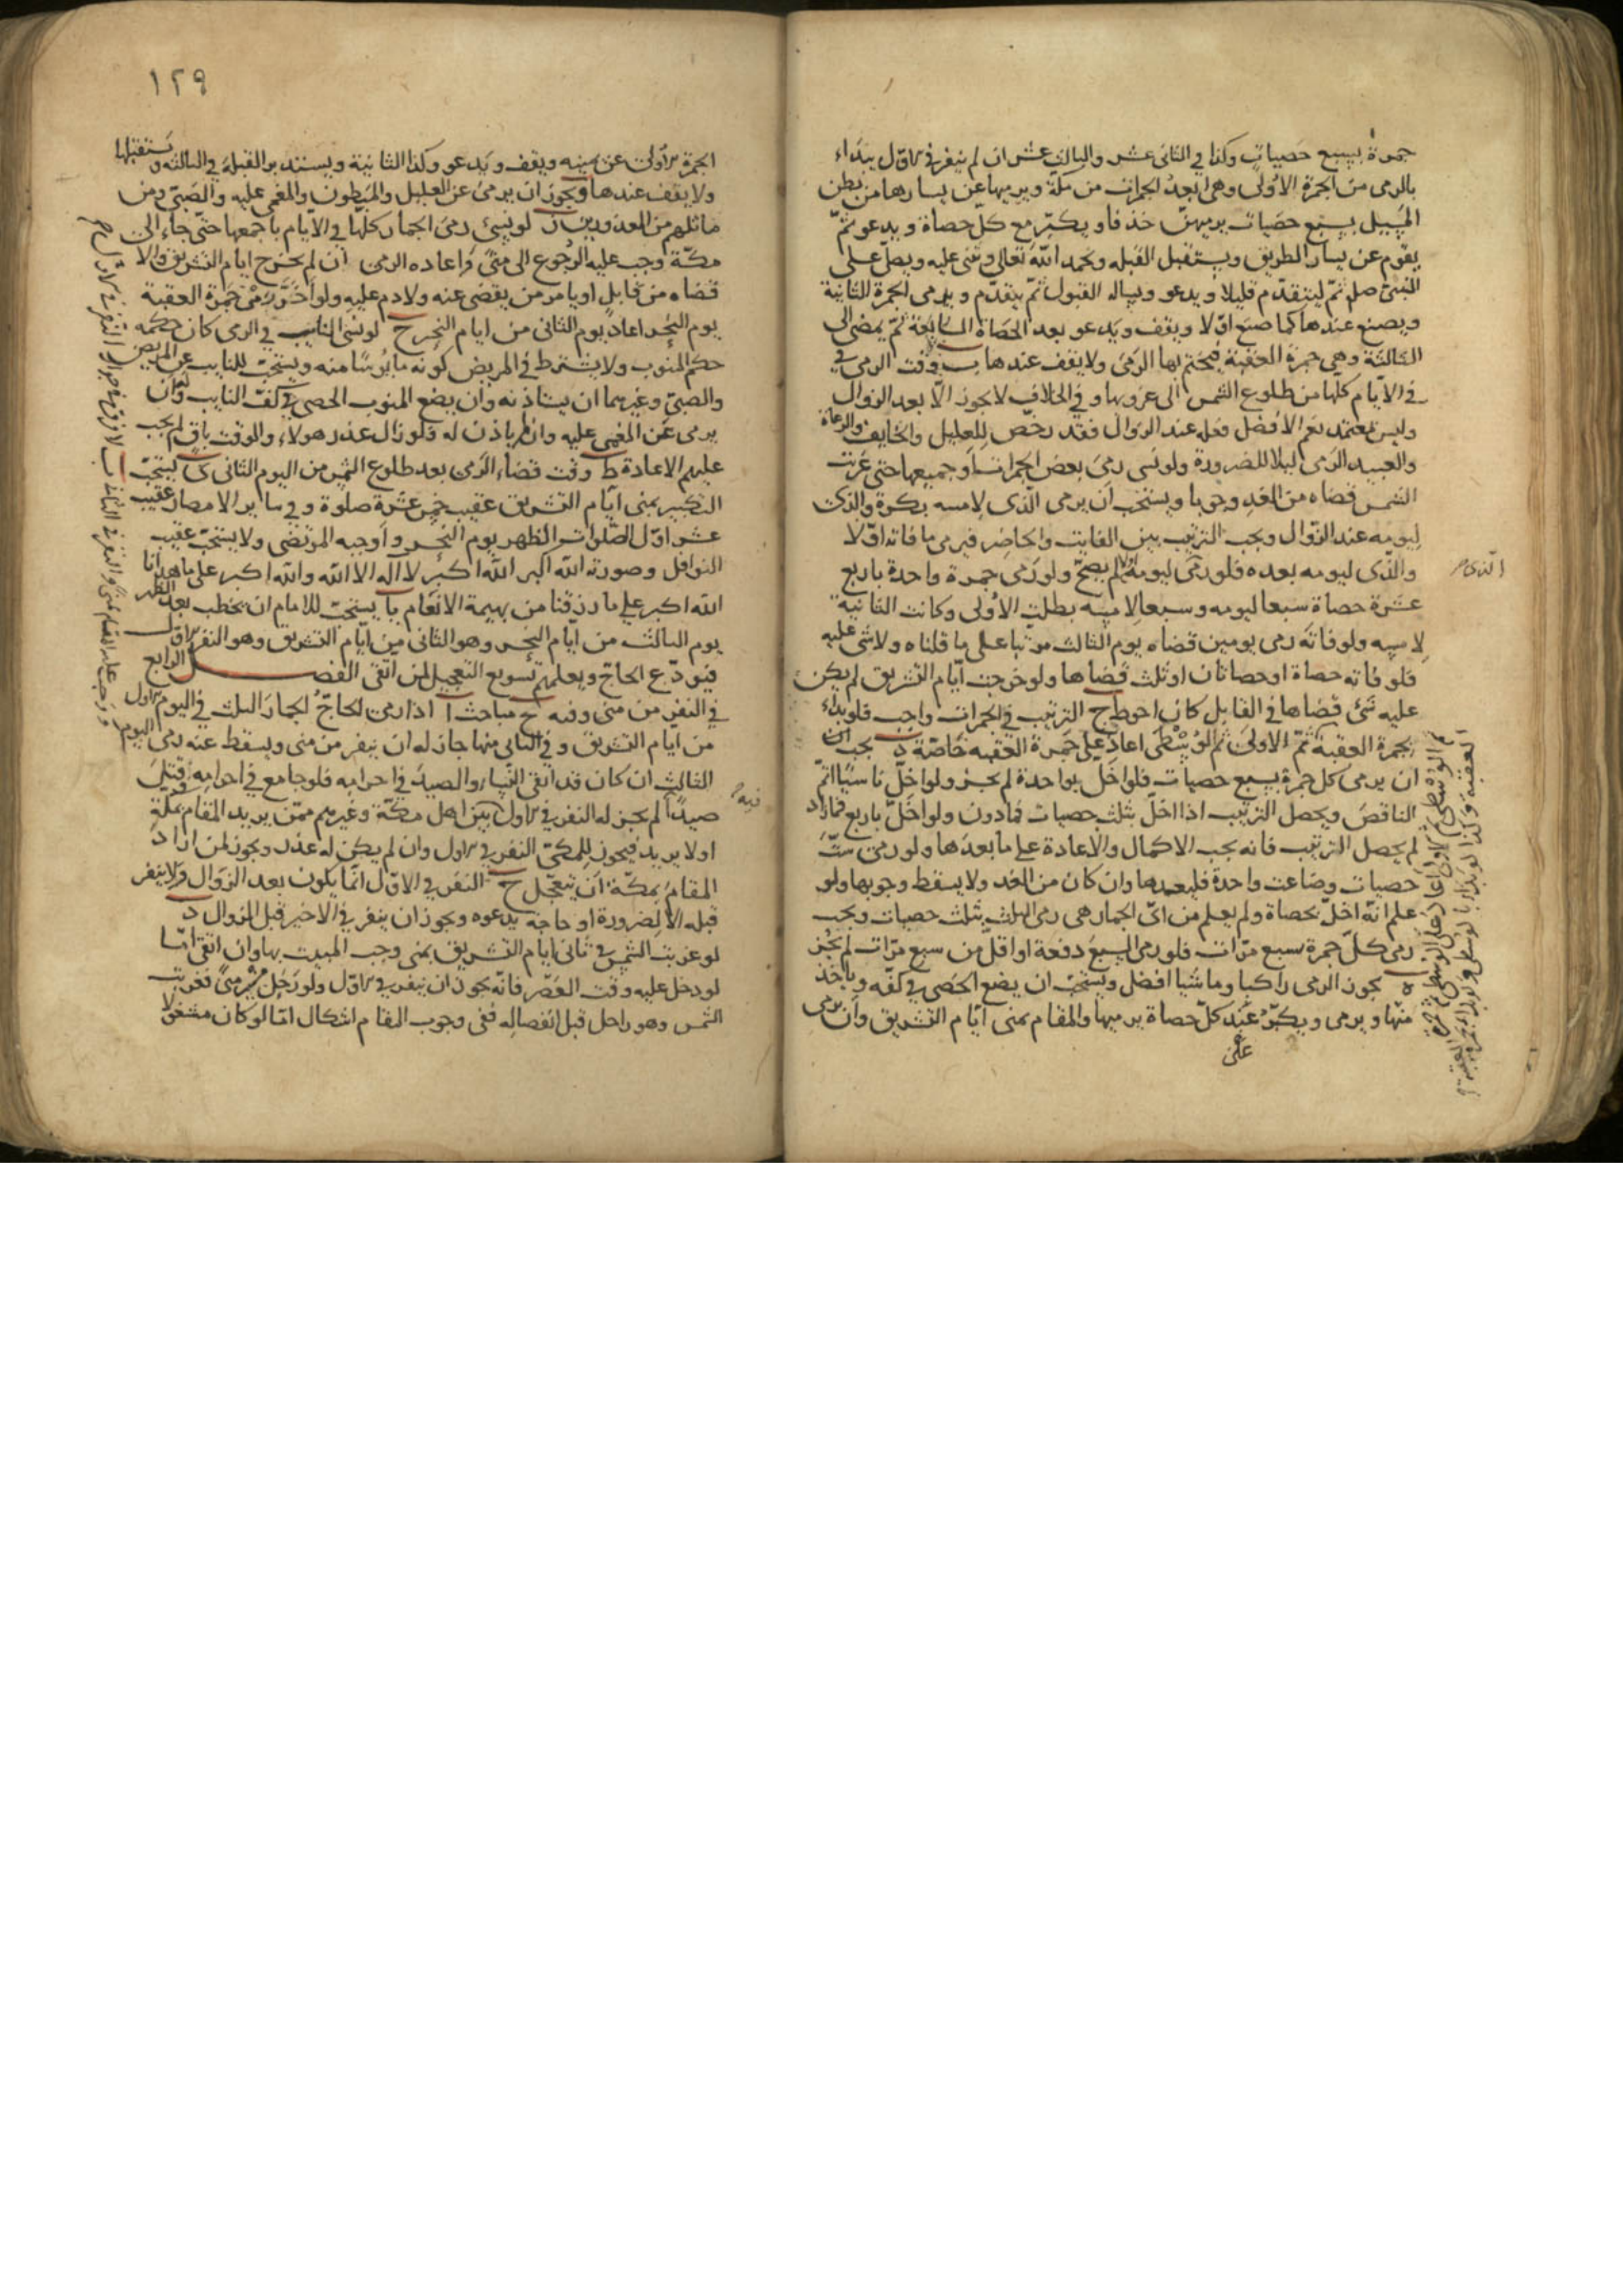 جمرة بسبع حصيات وكذا في الثاني عشر والثالث عشر ان لم ينفر في الاول يبداء
بالرمى من الجمرة الاولى وهى ابعد الجمرات من مكة ويرميها عن يسارها من بطن
المسيل بسبع حصيات يرميهن خذفا ويكبر مع كل حصاة ويدعو ثم
يقوم عن يسار الطريق ويستقبل القبله ويحمد الله تعالى ويثنى عليه ويصلى على
النبى صلم ثم ليتقدم قليلا ويدعو ويساله القبول ثم يتقدم و يرمى الجمرة الثانية
ويصنع عندها كما صنع اولا ويقف ويدعو بعد الحصاة السابعة ثم يمضى الى
الثالثة وهى جمرة العقبة فيختم بها الرمى ولا يقف عندها ب وقت الرمى في
في الايام كلها من طلوع الشمس الى غروبها وفي الخلاف لا يجوز الا بعد الزوال
وليس بمعتمد نعم الافضل فعله عند الزوال فقد رخص للعليل والخايف والرعاة
والعبيد الرمى ليلا للضرورة ولو نسى رمى بعض الجمرات او جميعها حتى غربت
الشمس قضاه من الغد وجوبا ويستحب ان يرمى الذى لامسه بكرة والذى
ليومه عند الزوال ويجب الترتيب بين الفايت والحاضر فيرمى ما فاته اولا
والذى ليومه بعده فلو رمى ليومه لم يصح ولو رمى جمرة واحدة باربع
الذى
عشرة حصاة سبعا ليومه وسبعا لامسه بطلت الاولى وكانت الثانية
لامسه ولو فاته رمى يومين قضاه يوم الثالث مرتبا على ما قلناه ولا شى عليه
فلو فاته حصاة او حصاتان او ثلث قضاها ولو خرجت ايام التشريق لم يكن
عليه شئ قضاها في القابل كان احوط ج الترتيب في الجمرات واجب فلو بداء
بجمرة العقبة ثم الوسطى ثم الاولى اعاد على جمرة العقبه خاصة د يجب
ان يرمى كل جمرة بسبع حصيات فلو اخل بواحدة لم يجز ولو اخل ناسيا اتم
الناقص ويحصل الترتيب اذا اخل بثلث حصيات فمادون ولو اخل باربع فمازاد
لم يحصل الترتيب فانه يجب الاكمال والاعادة على ما بعدها ولو رمى ست
حصيات وضاعت واحدة فليعدها وان كان من الغد ولا يسقط وجوبها ولو
علم انه اخل بحصاة ولم يعلم من اى الجمار هى رمى الثلث بثلث حصيات ويجب
رمى كل جمرة سبع مرات فلو رمى السبع دفعة او اقل من سبع مرات لم يجز
ه يجوز الرمى راكبا وماشيا افضل ويستحب ان يضع الحصى في كفه وياخذ
منها ويرمى ويكبر عند كل حصاة يرميها والمقام بمنى ايام التشريق وان يرمى
١٢٩
الجمرة الاولى عن يمينه ويقف ويدعو وكذا الثانية ويستدبر القبلة في الثالثه ويستقبلها
ولا يقف عندها ويجوز ان يرمى عن العليل والمبطون والمغمى عليه والصبى ومن
ماثلهم من المعذورين ز لو نسى رمى الجمار كلها في الايام باجمعها حتى جاء الى
مكة وجب عليه الرجوع الى منى واعاده الرمى ان لم يخرج ايام التشريق والا
قضاه من قابل او يامر من يقضى عنه ولا دم عليه ولو اخر رمى جمرة العقبة
يوم النحر اعاد يوم الثانى من ايام النحر ح لو نسى النايب في الرمى كان حكمه
حكم المنوب ولا يشترط في المريض كونه مايوسا منه ويستحب للنايب عن المريض
والصبى وغيرهما ان يستاذنه وان يضع المنوب الحصى في كف النايب وان
يرمى عن المغمى عليه وان لم ياذن له فلو زال عذر هولاء والوقت باق لم يجب
عليهم الاعادة ط وقت قضاء الرمى بعد طلوع الشمس من اليوم الثانى ى يستحب
التكبير بمنى ايام التشريق عقيب خمس عشرة صلوة وفي ساير الامصار عقيب
عشر اول الصلوات الظهر يوم النحر واوجبه المرتضى ولا يستحب عقيب
النوافل وصورته الله اكبر الله اكبر لا اله الا الله والله اكبر على ما هدانا
الله اكبر على ما رزقنا من بهيمة الانعام يا يستحب للامام ان يخطب بعد الظهر
يوم الثالث من ايام النحر وهو الثانى من ايام التشريق وهو النفر الاول
فيودع الحاج ويعلمهم تسويغ التعجيل لمن اتقى الفصل الرابع
في النفر من منى وفيه ح مباحث ا اذا رمى الحاج الجمار الثلث في اليوم الاول
من ايام التشريق وفي الثانى منها جاز له ان ينفر من منى ويسقط عنه رمى اليوم
الثالث ان كان قد اتقى النساء والصيد في احرامه فلو جامع في احرامه او قتل
صيدا لم يجز له النفر في الاول بين اهل مكة وغيرهم ممن يريد المقام بمكة
فيه
او لا يريد فيجوز للمكى النفر في الاول وان لم يكن له عذر ويجوز لمن اراد
المقام بمكة ان يتعجل ج النفر في الاول انما يكون بعد الزوال ولا ينفر
قبله الا لضرورة او حاجة يدعوه ويجوز ان ينفر في الاخير قبل الزوال د
لو غربت الشمس في ثانى ايام التشريق بمنى وجب المبيت بها وان اتقى اما
لو دخل عليه وقت العصر فانه يجوز ان ينفر في الاول ولو رحل من منى فغربت
الشمس وهو راحل قبل انفصاله ففى وجوب المقام اشكال اما لو كان مشغولا